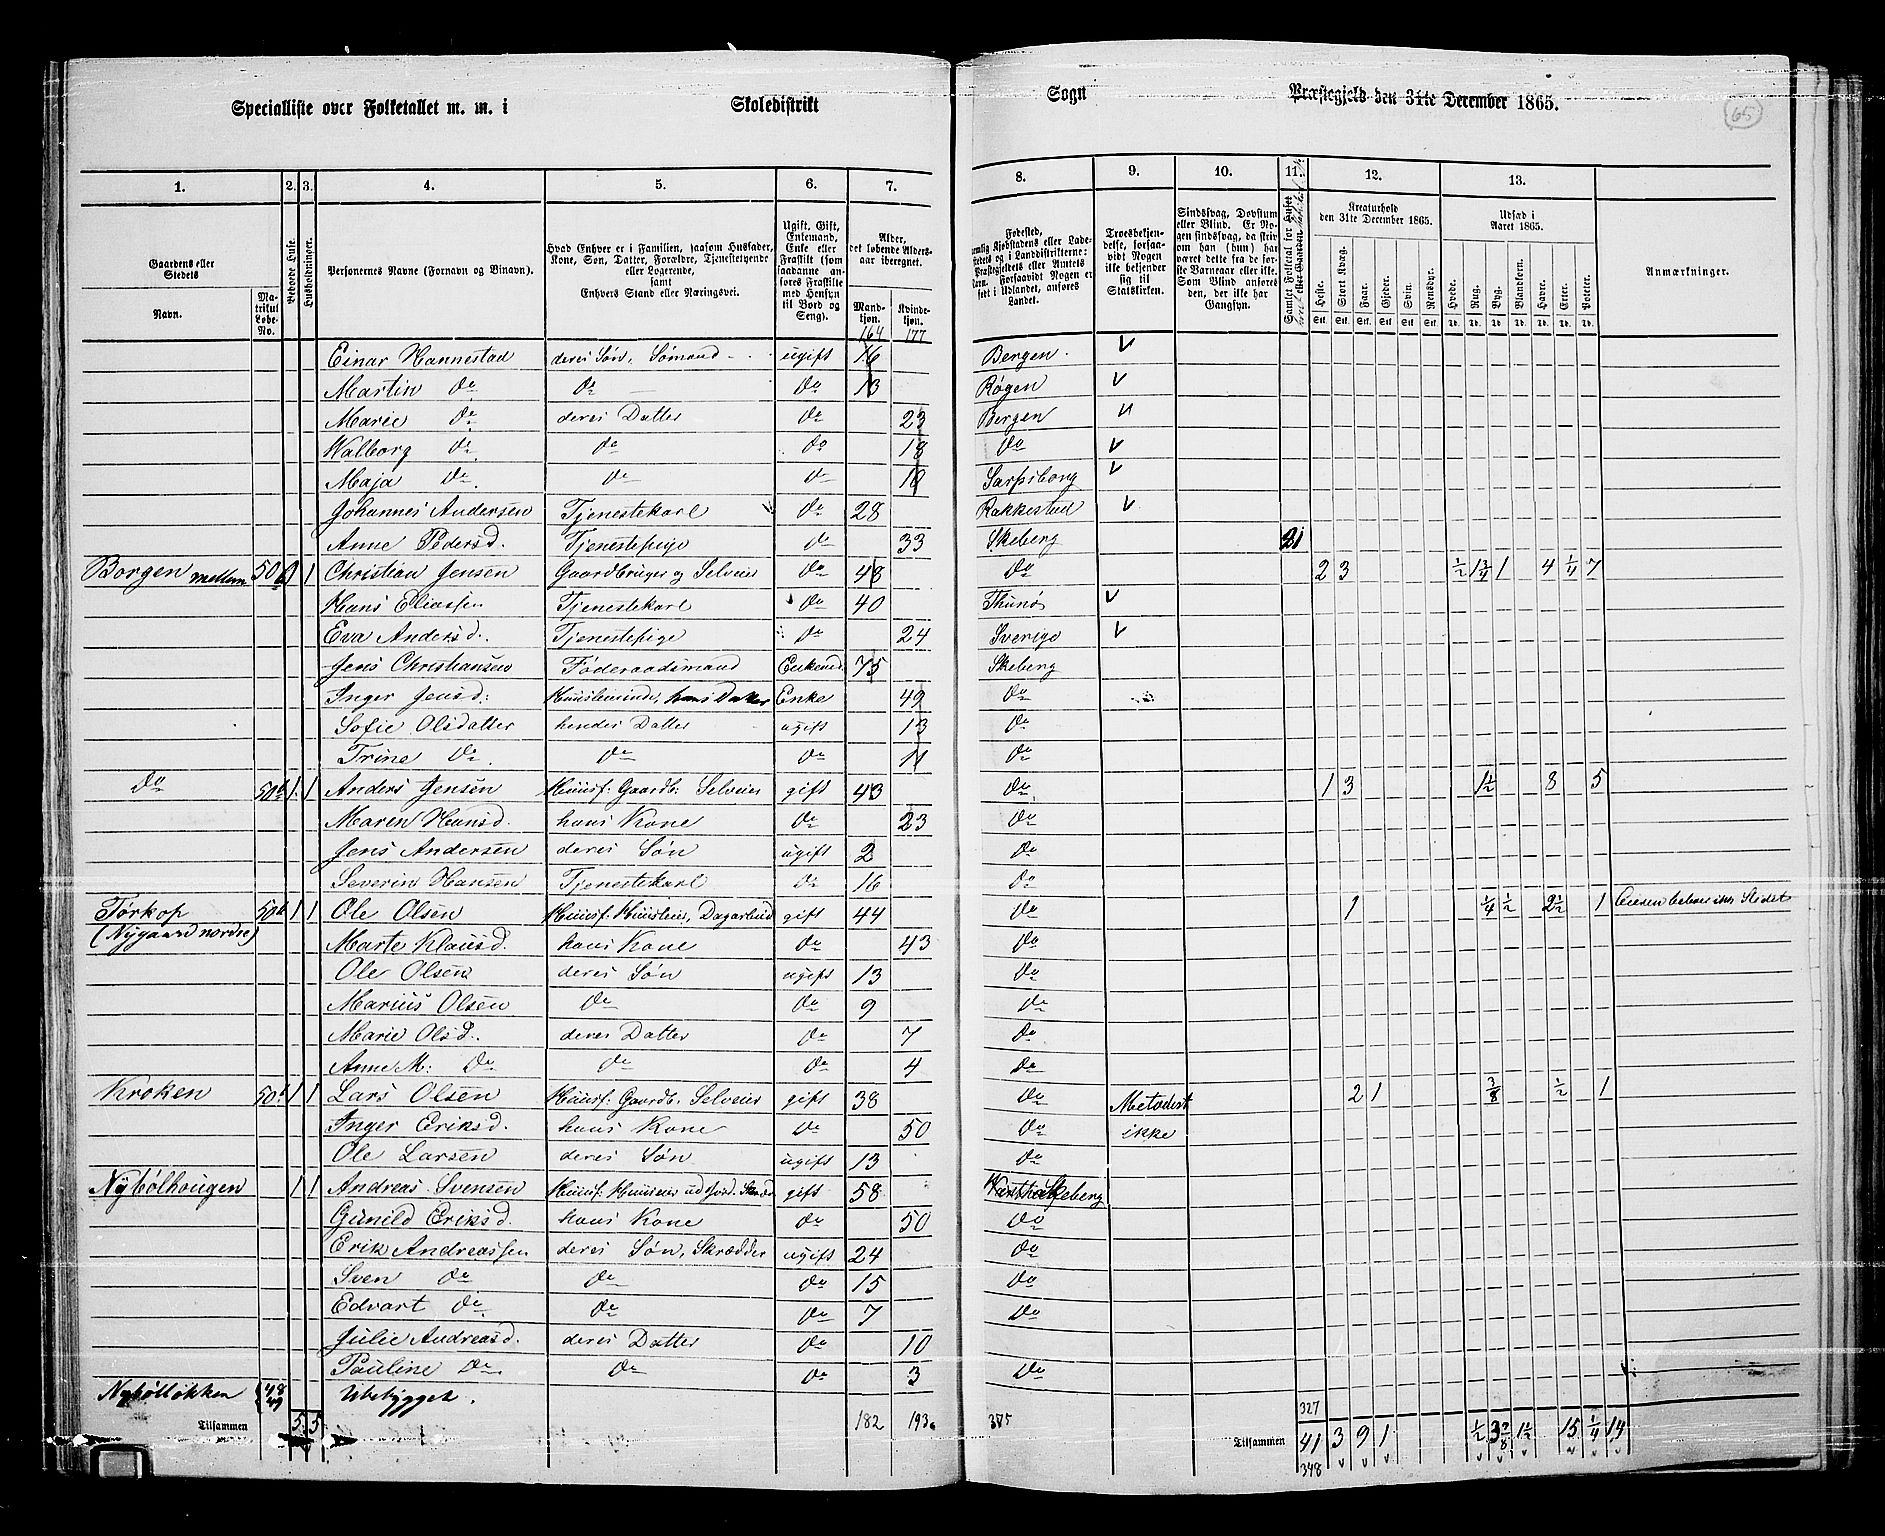 Specialliste over Folketallet m. m. i Skoledistrikt Sogn Præstegjeld den 31te December 1865. 65
1. 2. 3. 4. 5. 6. 7. 8. 9. 10. 11. 12. 13.
Gaardens eller Stedets Navn. Matrikul Løbe-No. Beboede Huse. Husholdninger. Personernes Navne (Fornavn og Tilnavn). Hvad Enhver er i Familien, saasom Husfader, Kone, Søn, Datter, Forældre, Tjenestetyende eller Logerende, samt Enhvers Stand eller Næringsvei. Ugift, Gift, Enkemand, Enke eller Fraskilt (som saadanne anføres Fraskilte med Hensyn til Bord og Seng). Alder, det løbende Alders-aar iberegnet. Mandkjøn. Kvindekjøn.
Trosbekjendelse, forsaavidt Nogen ikke bekjender sig til Statskirken. Sindssvag, Døvstum eller Blind. Kreaturhold den 31te December 1865. Udsæd i Aaret 1865. Anmærkninger.
Heste. Stort Kvæg. Faar. Gjeder. Svin. Rensdyr. Hvede. Rug. Byg. Blandkorn. Havre. Erter. Poteter.
164 177
Einar Hannestad deres Søn, Sømand ugift 16 Bergen. V
Martin do do do 13 Røgen V
Marie do deres Datter do 23 Bergen V
Walborg do do do 18 do V
Maja do. do do 10 Sarpsborg V
Johannes Andersen Tjenestekarl do 28 Rakkestad V
Anne Pedersd. Tjenestepige do 33 Skeberg 21
Borgen mellem 50 1 1 Christian Jensen Gaardbruger og Selveier do 48 do 2 3 1/2 1 3/4 1 4 1/4 7
Hans Eliassen Tjenestekarl do 40 Thunø V
Eva Andersd. Tjenestepige do 24 Sverige V
Jens Christiansen Føderaadsmand Enkemd 75 Skeberg
Inger Jensd: hans Datter Enke 49 do
Sofie Olsdatter hendes Datter ugift 13 do
Trine do. do do 11 do
do 50b 1 1 Anders Jensen Huusf: Gaardb: Selveier gift 43 do 1 3 1 1/2 8 5
Maren Hansd. hans Kone do 23 do
Jens Andersen deres Søn ugift 2 do
Severin Hansen Tjenestekarl do 16 do
Tørkop 50 1 1 Ole Olsen Huusf: Huuseier, Dagarbeid gift 44 do 1 1/4 1/2 2 1/2 1 Eieren beboer ikke Stedet
(Nygaard nordre) Marte Klausd. hans Kone do 43 do
Ole Olsen deres Søn ugift 13 do
Marius Olsen do do 9 do
Marie Olsd. deres Datter do 7 do
Anne M: do do do 4 do
Kroken 50 1 1 Lars Olsen Huusf: Gaardb: Selveier gift 38 do Metodist 2 1 3/8 1/2 1
Inger Eriksd. hans Kone do 50 do ikke
Ole Larsen deres Søn ugift 13 do
Nybølhougen 1 1 Andreas Svensen Huusf: Huuseier ud Jord. gift 58 Skeberg
Gunild Eriksd. hans Kone do 50 do
Erik Andreassen deres Søn, Skrædder ugift 24 do
Sven do do do 15 do
Edvart do do do 7 do
Julie Andreasd. deres Datter do 10
Pauline do do do 3 do
Nybølløkken 48 49 Ubebygget.
327
Tilsammen 5 5 182 193 375 Tilsammen 41 3 9 1 1/2 3 7/8 1 1/2 15 1/4 14
348